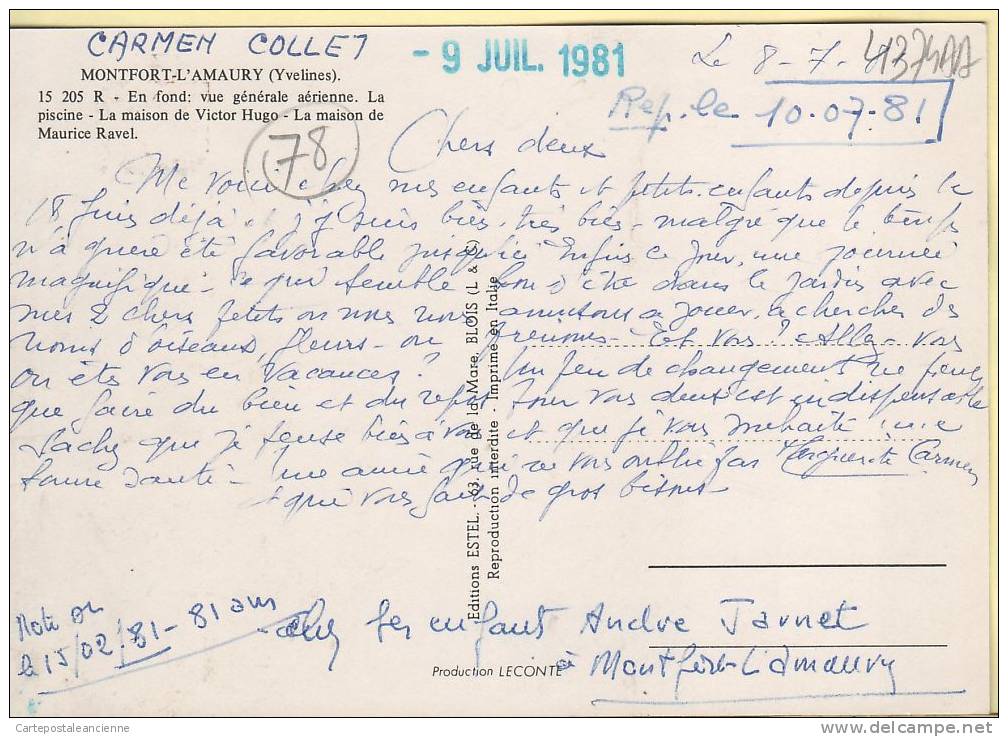 CARMEN COLLET
- 9 JUIL. 1981
Le 8-7-81
41374AA
MONTFORT-L'AMAURY (Yvelines).
15 205 R - En fond: vue générale aérienne. La
piscine - La maison de Victor Hugo - La maison de
Maurice Ravel.
Rep. le 10.07.81
78
Chers deux
Me voici chez mes enfants et petits-enfants depuis le
18 Juin déjà. J'y suis bien, très bien - malgré que le temps
n'a guère été favorable jusqu'ici Enfin ce jour, une journée
magnifique - ce qui semble bon d'être dans le jardin avec
mes 2 chers petits on nous nous amusons a jouer, a chercher des
noms d'oiseaux, fleurs - ou prénoms - Et vous? Allez-vous
ou êtes vous en vacances? Un peu de changement ne peut
que faire du bien et du repos pour vous deux est indispensable
Sachez que je pense bien à vous et que je vous souhaite une
bonne santé - Une amie qui ne vous oublie pas Marguerite Carmen
et que vous fait de gros bisous -
Editions ESTEL - 63, rue de la Mare, BLOIS (L & C)
Reproduction interdite - Imprimé en Italie
Noté on
le 15/02/81 - 81 ans
- chez ses enfant André Jarnet
à Montfort-L'amaury
Production LECONTE
Cartepostaleancienne
www.delcampe.net